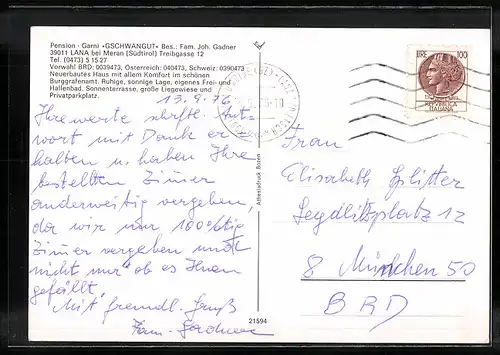 Pension - Garni «GSCHWANGUT» Bes.: Fam. Joh. Gadner
39011 LANA bei Meran (Südtirol) Treibgasse 12
Tel. (0473) 5 15 27
Vorwahl BRD: 0039473, Österreich: 040473, Schweiz: 0390473
Neuerbautes Haus mit allem Komfort im schönen
Burggrafenamt. Ruhige, sonnige Lage, eigenes Frei- und
Hallenbad. Sonnenterrasse, große Liegewiese und
Privatparkplatz.
13.9.76
Ihre werte schrftl. Ant-
wort mit Dank er
halten u. haben Ihre
bestellten Zimer
anderweitig vergeben,
da wir nur 100%tig
Zimer vergeben und
nicht nur ob es Ihnen
gefällt
Mit freundl. Gruß
Fam. Gadner
21594
Athesiadruck Bozen
LIRE 100
REPUBBLICA
ITALIANA
Frau
Elisabeth Splitter
Seydlitzplatz 12
8 München 50
BRD